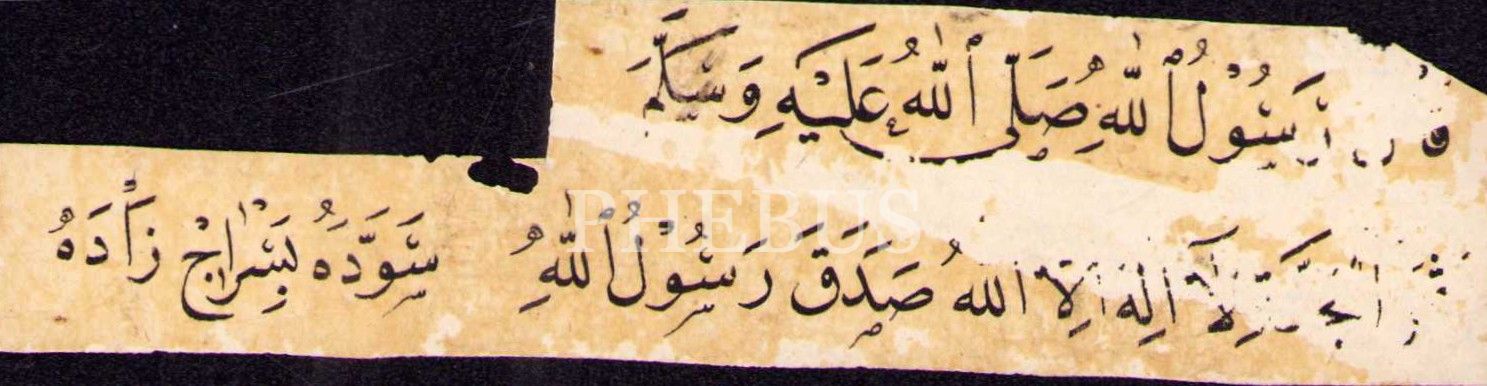 قَالَ رَسُوْلُ اللّٰهِ صَلَّى اللّٰهُ عَلَيْهِ وَسَلَّمَ
ثَمَنُ الْجَنَّةِ لَآ اِلٰهَ اِلَّا اللهُ صَدَقَ رَسُوْلُ اللّٰهِ سَوَّدَهُ سَرَاجْ زَادَهْ
PHEBUS